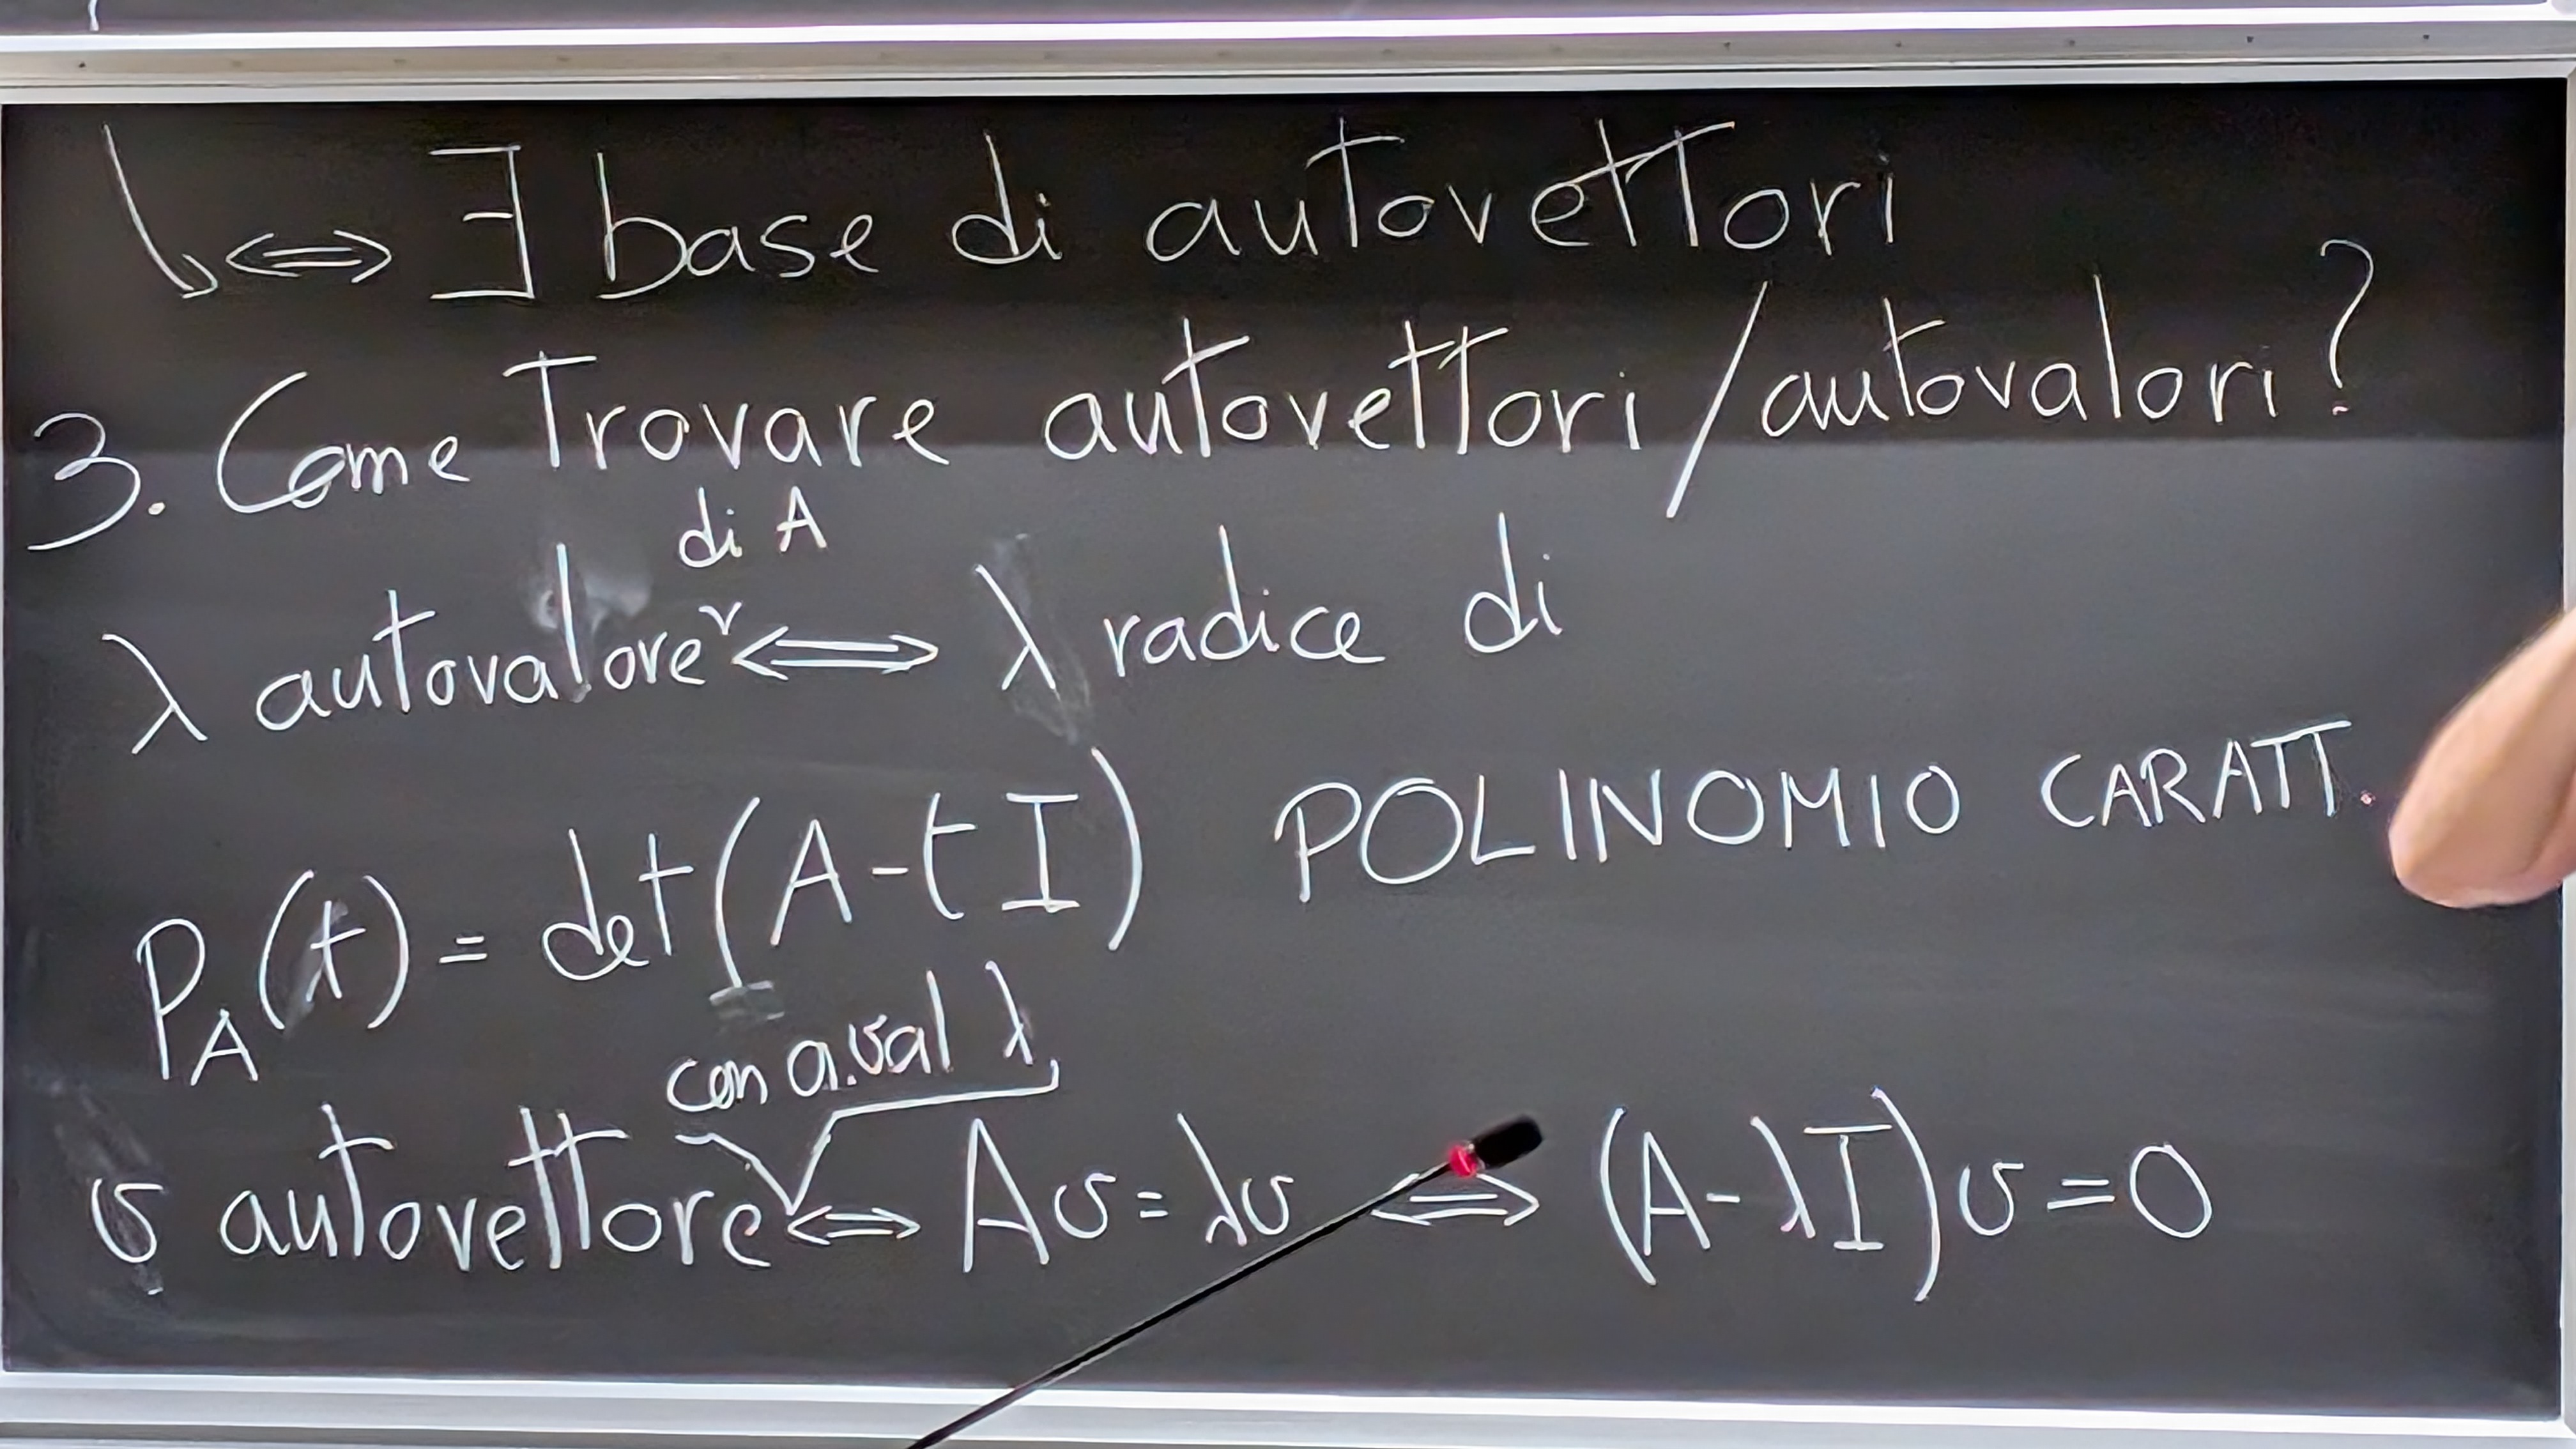 ↳ ⇔ ∃ base di autovettori
3. Come Trovare autovettori/autovalori?
di A
λ autovalore ⇔ λ radice di
P_A(t) = det(A-tI) POLINOMIO CARATT.
con a.val λ
v autovettore ⇔ Av=λv ⇔ (A-λI)v=0